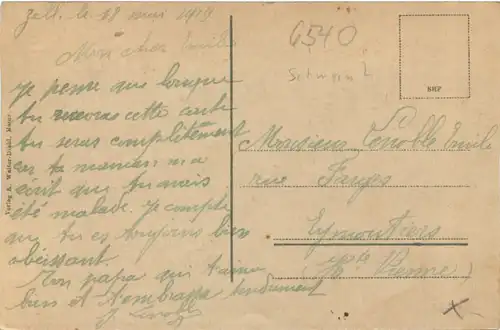 Zell. le 18 mai 1919
Mon cher Emile
Je pense qui lorsque
tu recevras cette carte
tu seras complètement
ta maman m'a
écrit que tu avais
été malade. Je compte
que tu es toujours bien
obéissant
Ton papa qui t'aime
bien et t'embrasse tendrement
J. Lenoble
6540
SHF
Monsieur Lenoble Emile
rue Farges
Eymoutiers
(Hte Vienne)
Verlag A. Walter-Diehl, Mayen